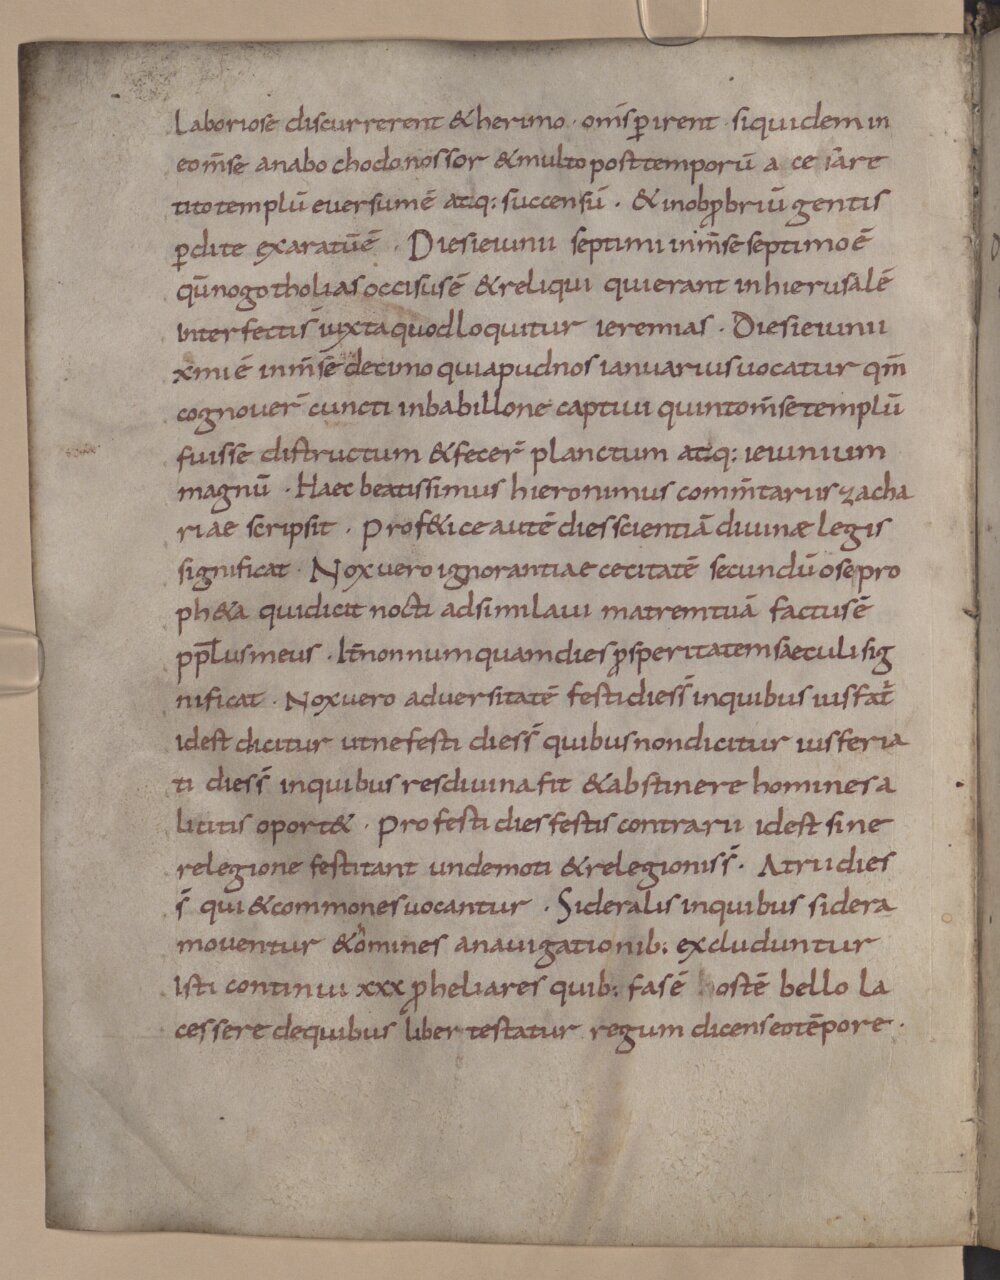 Laboriose discurrerent & herimo · om̅s p̲irent · siquidem in
eo m̅se anabochodonossor & multo post temporu̅ a ce ia̅re
tito templu̅ eversum e̅ atq: succensu̅ · & in obp̲briu̅ gentis
p̲dite exaratu̅ e̅ · Dies ieiunii septimi in m̅se septimo e̅
qu̅o gotholias occisus e̅ & reliqui qui erant in hierusale̅
interfectis iuxta quod loquitur ieremias · Dies ieiunii
xmi e̅ in m̅se decimo qui apud nos ianuarius uocatur qm̅
cognouer̅ cuncti in babillone captiui quinto m̅se templu̅
fuisse distructum & fecer̅ planctum atq: ieiunium
magnu̅ · Haec beatissimus hieronimus comm̅tariis zacha
riae scripsit · Prof&ice aute̅ dies scientia̅ diuinæ legis
significat · Nox uero ignorantiae cecitate̅ secundu̅ ose pro
ph&a qui dicit nocti adsimilaui matrem tua̅ factus e̅
ppl̅us meus · It̅ nonnumquam dies p̲speritatem saeculi sig
nificat · Nox uero adversitate̅ festi dies s̅ in quibus ius fat̅
id est dicitur ut nefesti dies s̅ quibus non dicitur ius feria
ti dies s̅ in quibus res diuina fit & abstinere homines a
licitis oport& · Profesti dies festis contrarii id est sine
relegione festitant unde moti & relegionis s̅ · Atrii dies
s̅ qui & commones uocantur · Sideralis in quibus sidera
mouentur & omines a nauigationib: excluduntur
Isti continui xxx p̲heliares quib: fas e̅ hoste̅ bello la
cessere de quibus liber testatur regum dicens eo te̅pore ·